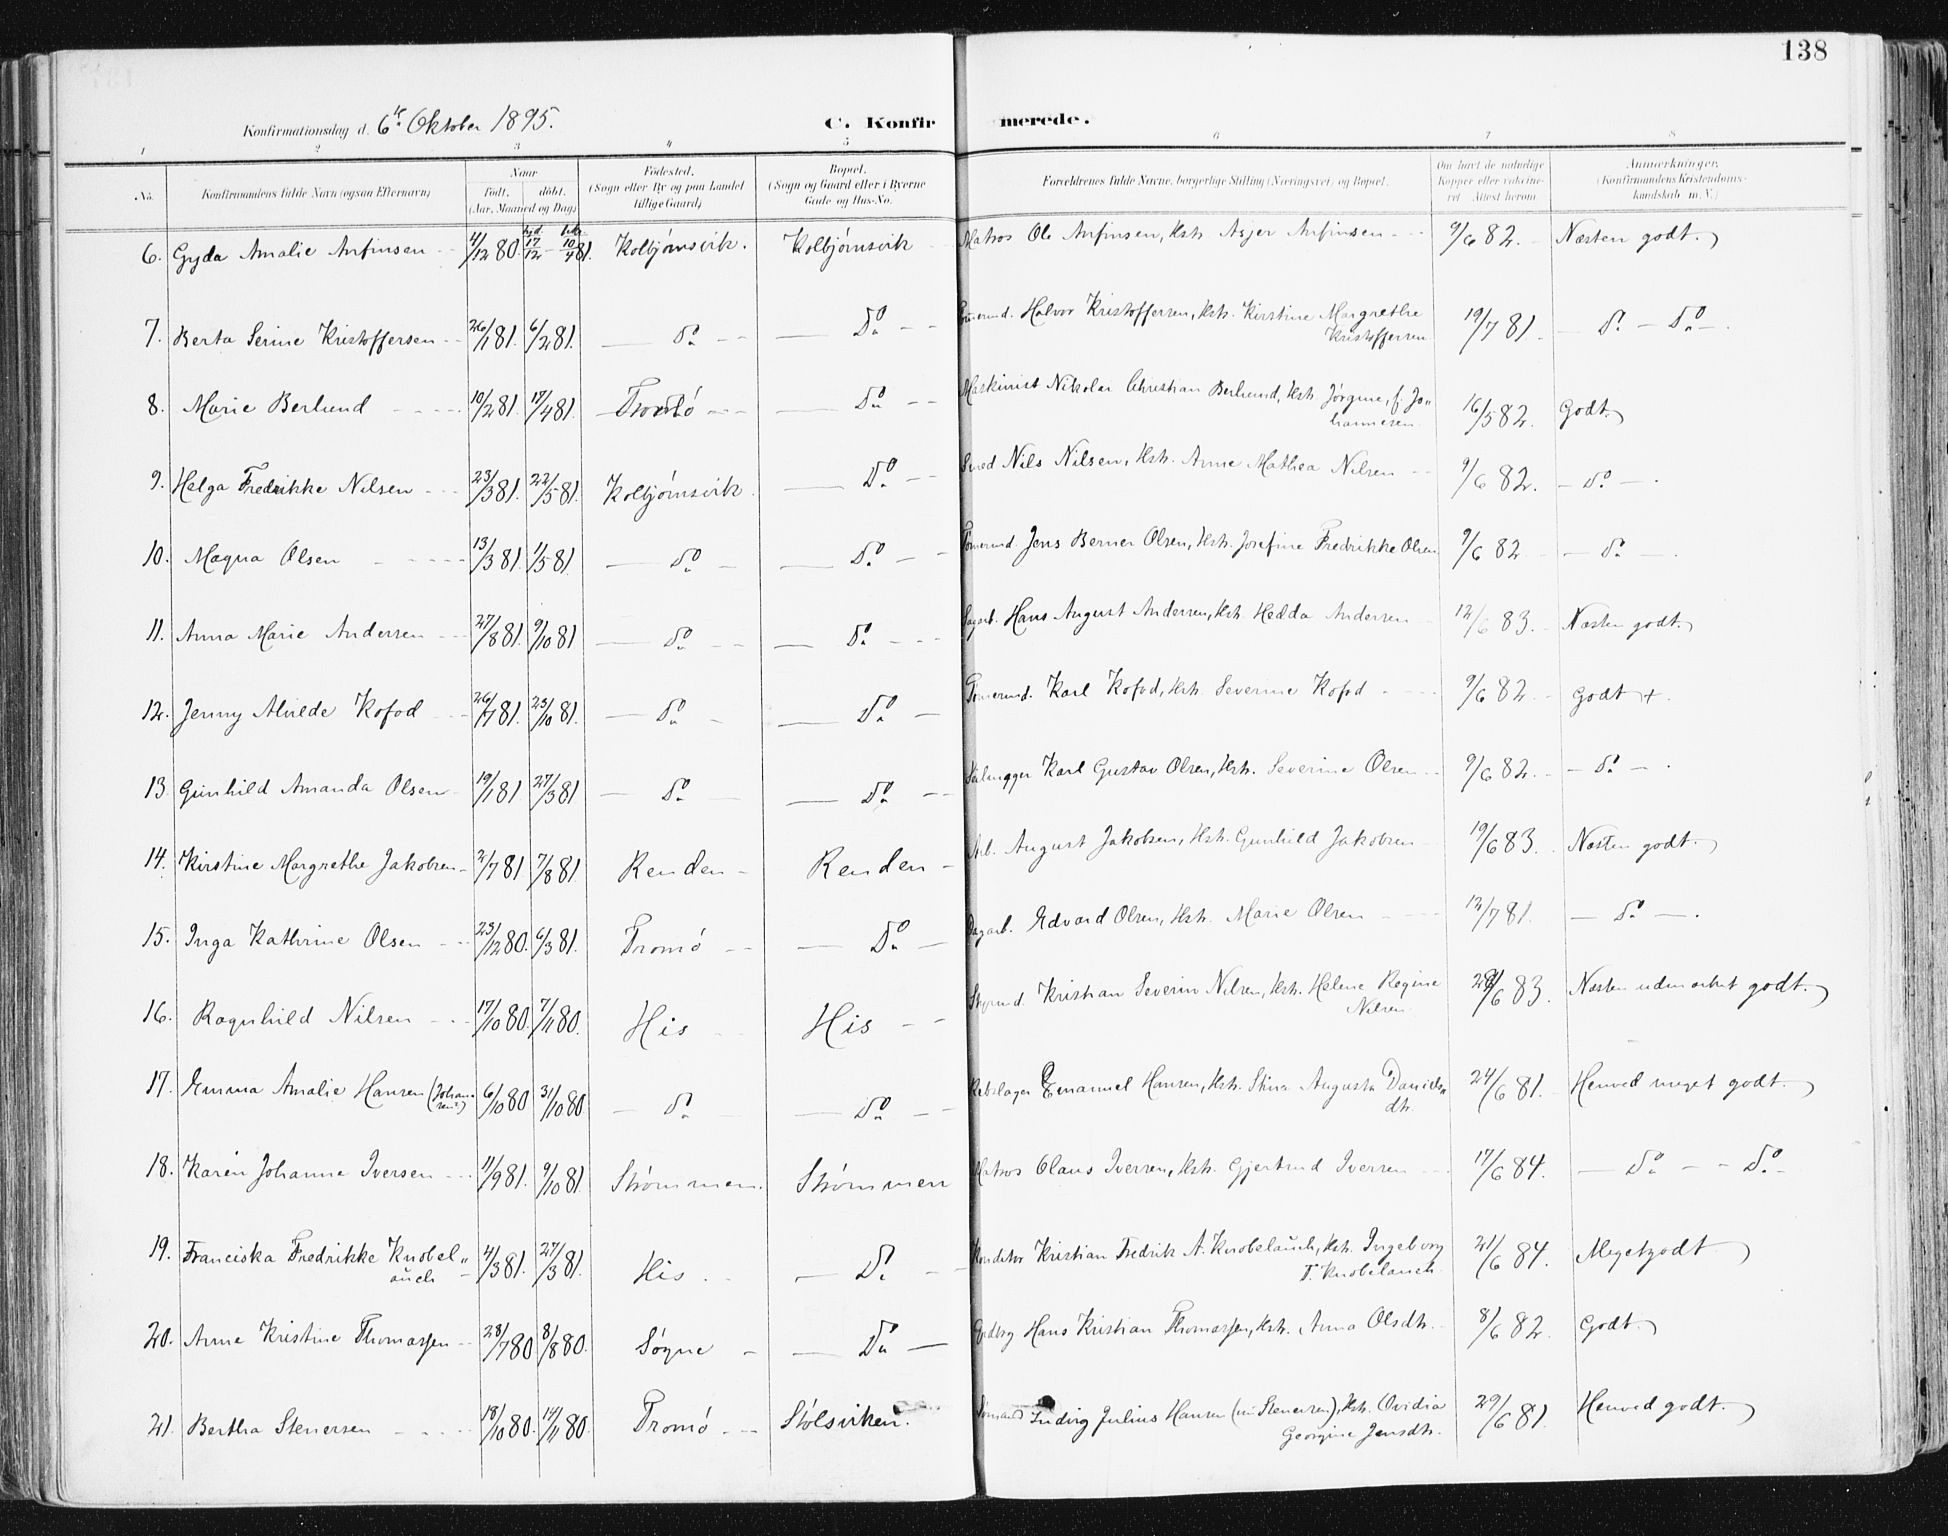 138
Konfirmationsdag d. 6te Oktober 1895. C. Konfirmerede.
1 2 3 4 5 6 7 8
No. Konfirmandens fulde Navn (ogsaa Efternavn) Naar født, døbt. (Aar, Maaned og Dag) Fødested. (Sogn eller By og paa Landet tillige Gaard) Bopæl. (Sogn og Gaard eller i Byerne Gade og Hus-No. Forældrenes fulde Navne, borgerlige Stilling (Næringsvei) og Bopæl. Om havt de naturlige Kopper eller vaccineret Attest herom. Anmærkninger. (Konfirmandens Kristendomskundskab m. V.)
6. Gyda Amalie Anfinsen 4/12 80. hjd. 17/12 – 10/4 81. Kolbjörnsvik. Kolbjörnsvik Matros Ole Anfinsen, Hstr. Asjer Anfinsen 9/6 82. Næsten godt.
7. Berta Serine Kristoffersen 26/1 81. 6/2 81. Do Do Tömermd. Halvor Kristoffersen, Hstr. Kirstine Margrethe
Kristoffersen 19/7 81. Do Do
8. Marie Berlund 10/2 81. 17/4 81. Tromö Do Maskinist Nikolai Christian Berlund, Hstr. Jörgine, f. Jo„
hannesen 16/5 82. Godt.
9. Helga Fredrikke Nilsen 23/3 81. 22/5 81. Kolbjörnsvik. Do Smed Nils Nilsen, Hstr. Anne Mathea Nilsen 9/6 82. do
10. Magna Olsen 13/3 81. 1/5 81. do Do Tömermd. Jens Berner Olsen, Hstr. Josefine Fredrikke Olsen 9/6 82 do
11. Anna Marie Andersen 27/8 81. 9/10 81 do Do Dagarb. Hans August Andersen, Hstr. Hedda Andersen 12/6 83. Næsten godt.
12. Jenny Alvilde Kofod 26/7 81. 23/10 81. do Do Tömermd. Karl Kofod, Hstr. Severine Kofod 9/6 82 Godt +.
13. Gunhild Amanda Olsen 19/1 81 27/3 81 do Do Karl Gustav Olsen, Hstr. Severine Olsen 9/6 82. do
14. Kirstine Margrethe Jakobsen 2/7 81 7/8 81. Renden Renden Arb. August Jakobsen, Hstr. Gunhild Jakobsen 19/6 83. Næsten godt.
15. Inga Kathrine Olsen 23/12 80. 6/3 81. Tromö Do Dagarb. Edvard Olsen, Hstr. Marie Olsen 12/7 81. do
16. Ragnhild Nilsen 17/10 80. 7/11 80. His His Styrmd. Kristian Severin Nilsen, Hstr. Helene Regine
Nilsen 6 83. Næsten udmærket godt.
17. Emma Amalie Hansen (Johan-
sen?) 6/10 80 31/10 80 do Do Rebslager Emanuel Hansen, Hstr. Stina Augusta Daniels„
dtr. 24/6 81. Henved meget godt.
18. Karen Johanne Iversen 11/9 81. 9/10 81 Strömmen. Strömmen Matros Claus Iversen, Hstr. Gjertrud Iversen 17/6 84. Do Do
19. Franciska Fredrikke Knobel„
auch 4/3 81. 27/3 81. His. Do Konditor Kristian Fredrik A. Knobelauch, Hstr. Ingeborg
T. Knobelauch 21/6 84. Megetgodt
20. Anne Kristine Thomassen 28/7 80 8/8 80. Sögne Do Hans Kristian Thomassen, Hstr. Anna Olsdtr. 8/6 82. Godt.
21. Bertha Stenersen 18/10 80. 14/11 80. Tromö Stölsviken. Sömand Ludvig Julius Hansen (nu Stenersen), Hstr. Ovidia
Georgine Jensdtr. 29/6 81. Henved godt.